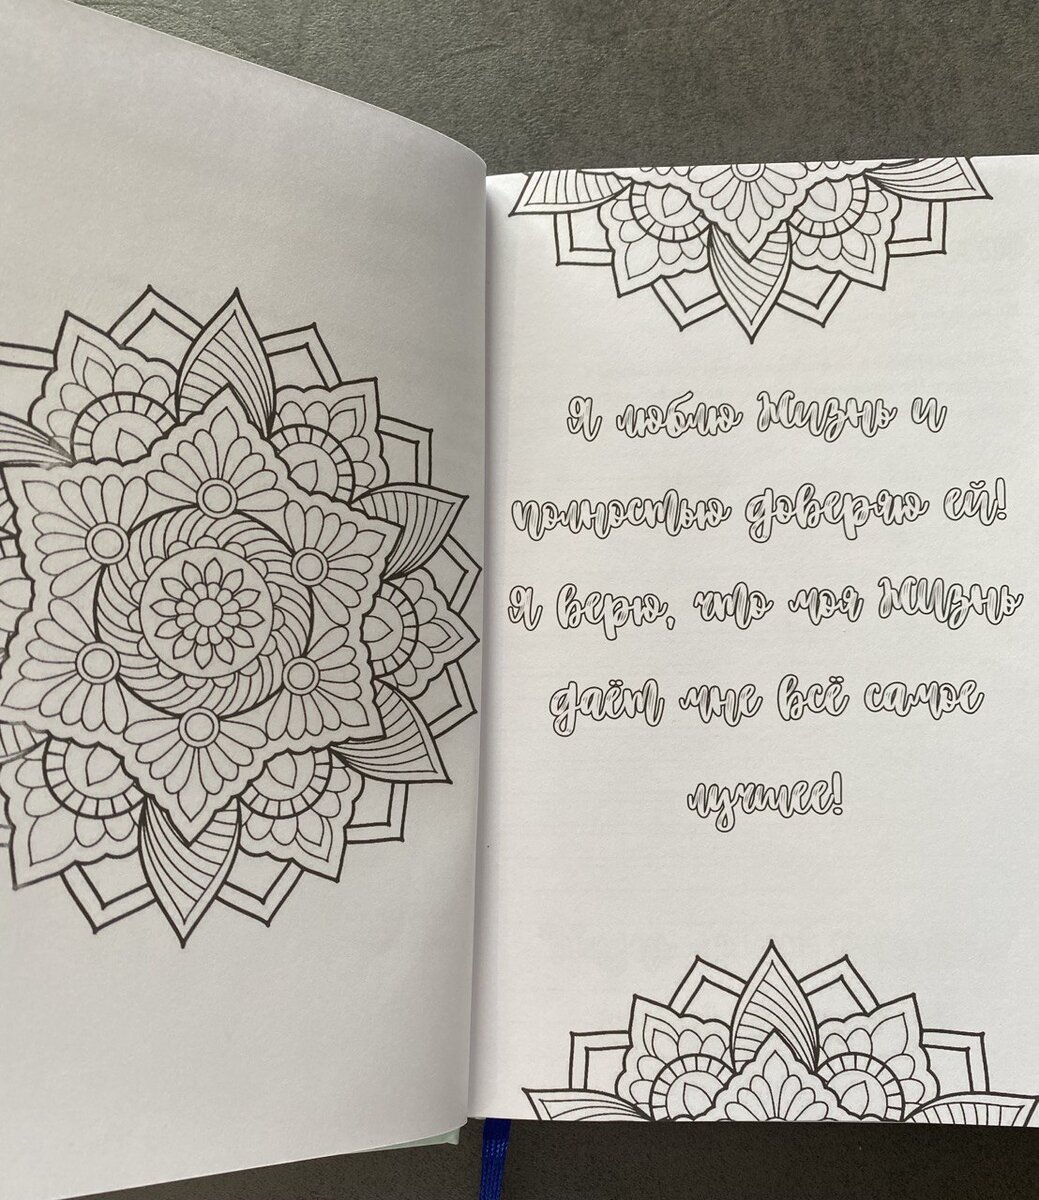 Я люблю жизнь и
полностью доверяю ей!
Я верю, что моя жизнь
даёт мне всё самое
лучшее!